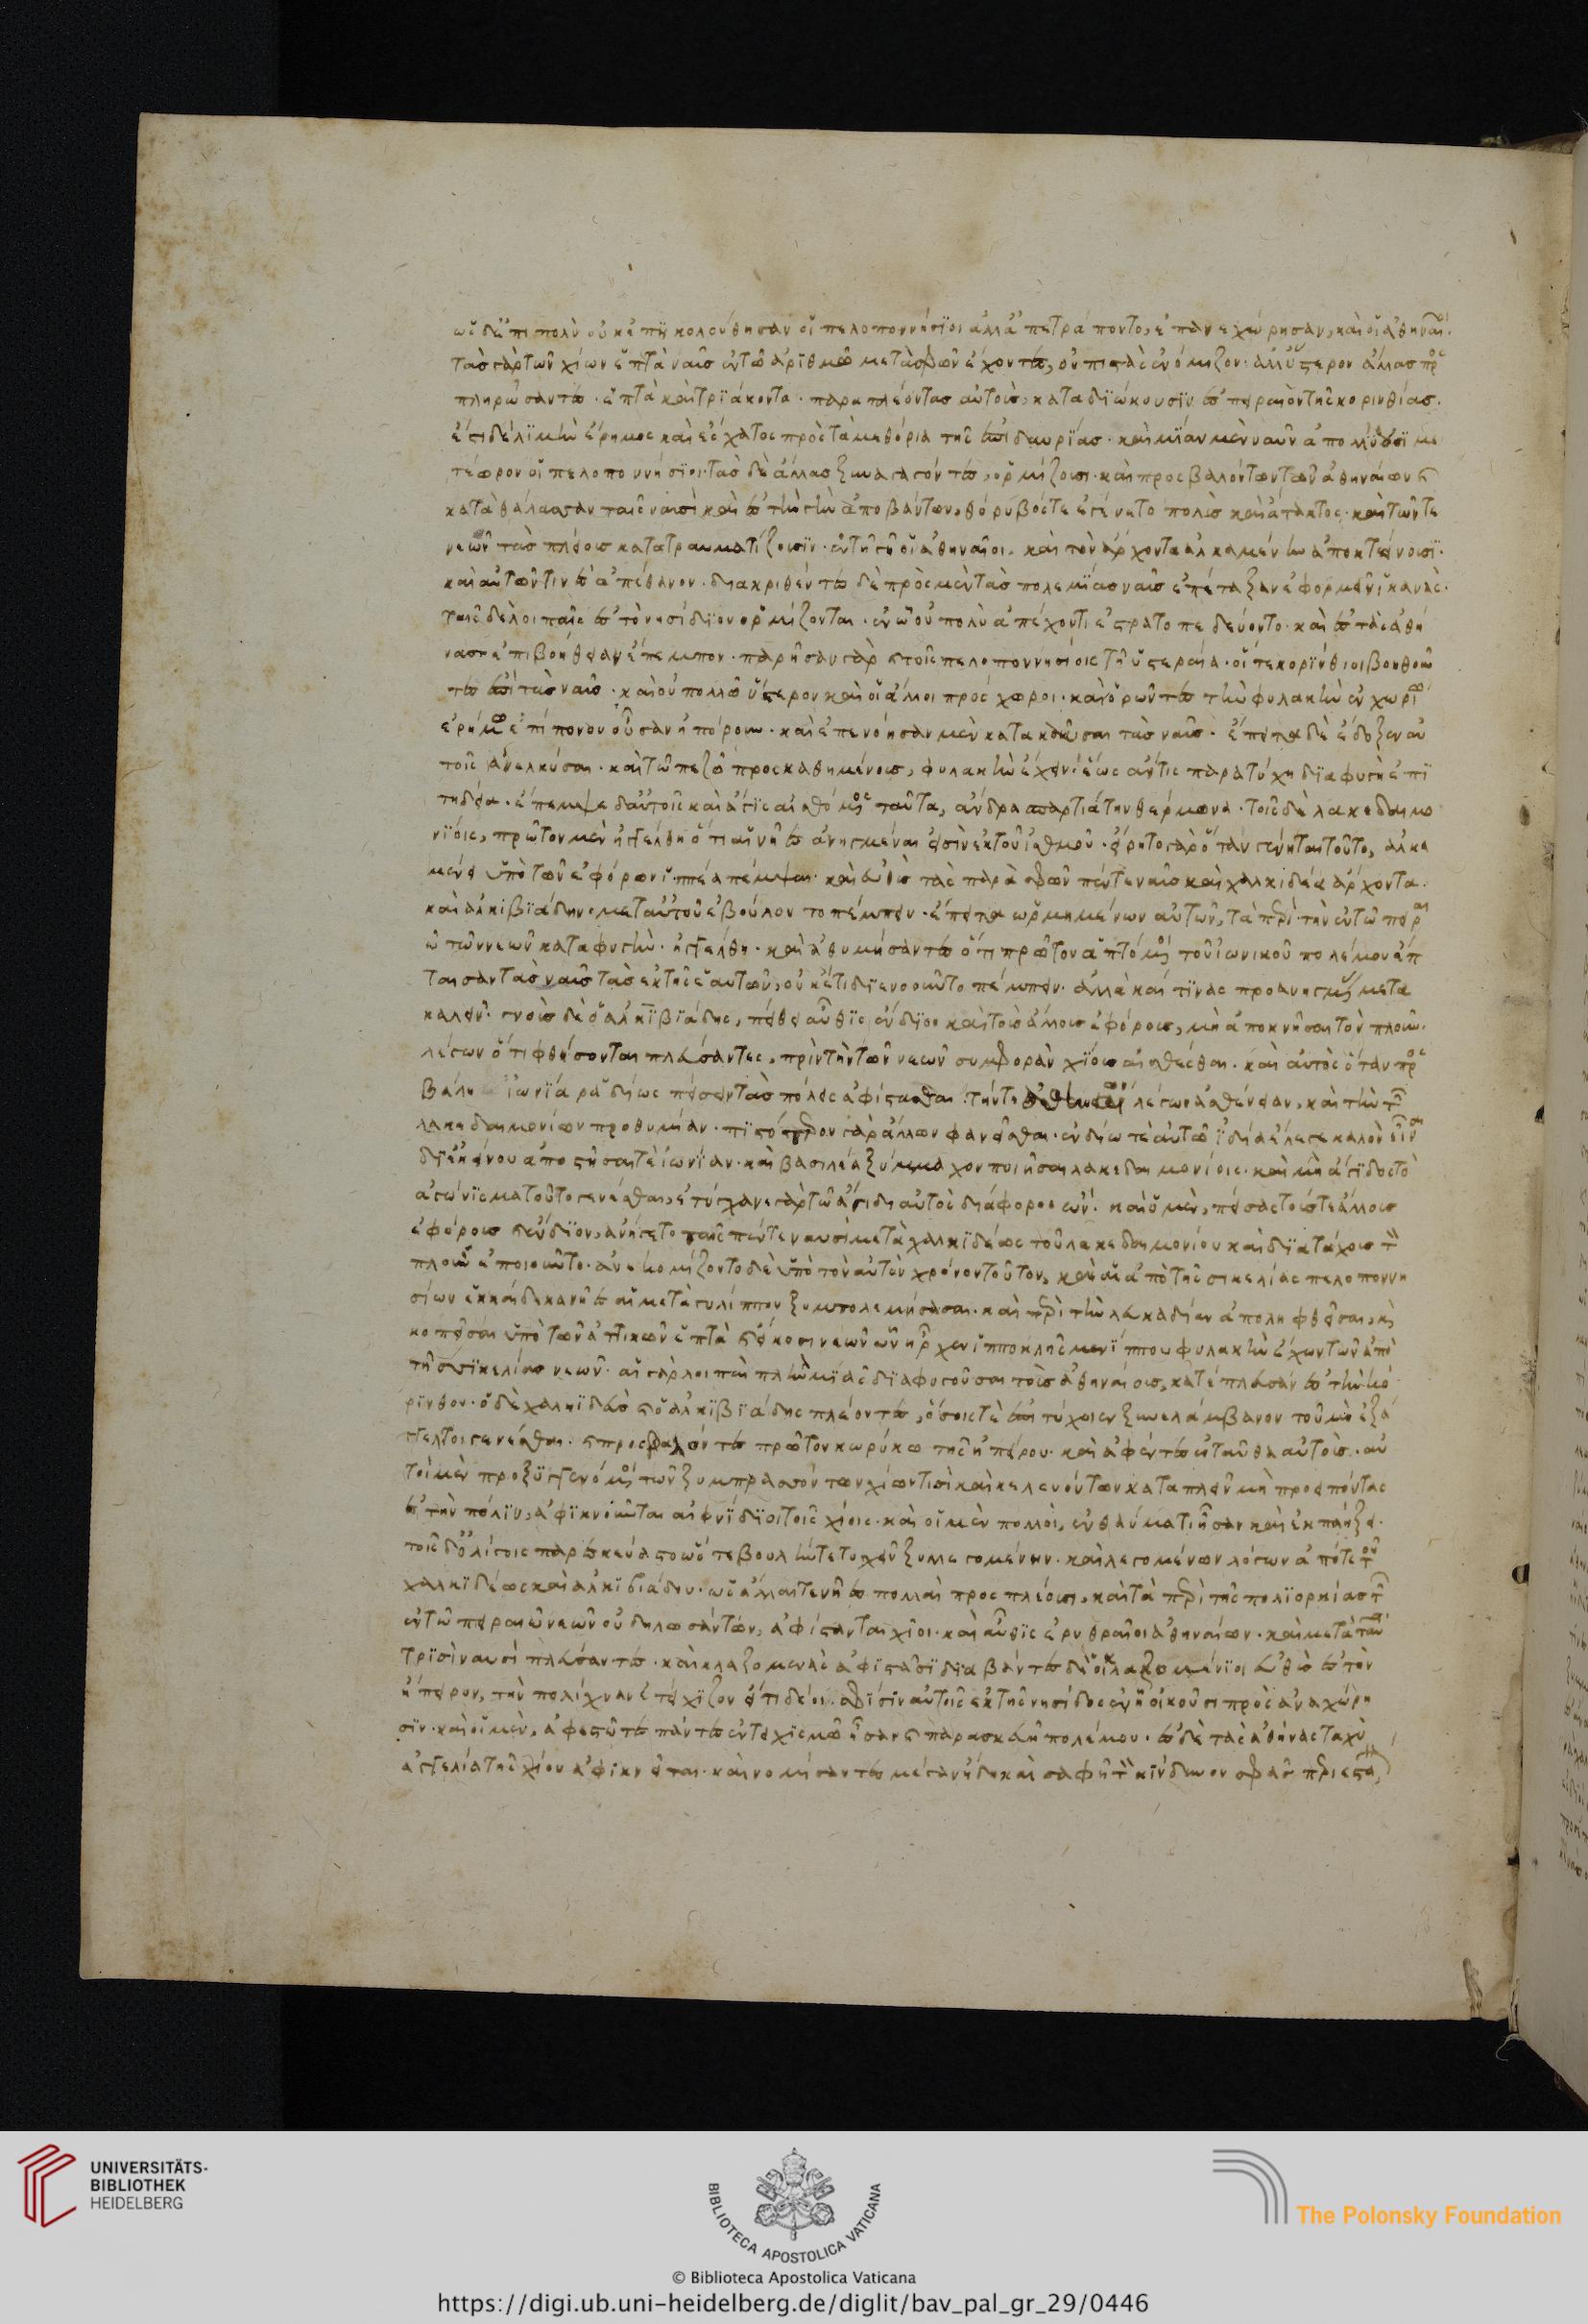 ὡς δ' ἐπὶ πολὺ οὐκ ἐπηκολούθησαν οἱ πελοποννήσιοι ἀλλ' ἀπετράποντο, ἐπανεχώρησαν, καὶ οἱ ἀθηναῖοι·
τὰς γὰρ τῶν χίων ἑπτὰ ναῦς ἐν τῶ ἀριθμῶ μετὰ σφῶν ἔχοντες, οὐ πιστὰς ἐνόμιζον· ἀλλ' ὕστερον ἄλλας προσ
πληρώσαντες· ἑπτὰ καὶ τριάκοντα· παραπλέοντας αὐτοὺς, καταδιώκουσιν ἐς πειραιὸν τῆς κορινθίας·
ἔστι δὲ λιμὴν ἐρῆμος καὶ ἔσχατος πρὸς τὰ μεθόρια τῆς ἐπιδαυρίας· καὶ μίαν μὲν ναῦν ἀπολλύουσι με
τέωρον οἱ πελοποννήσιοι· τὰς δὲ ἄλλας ξυναγαγόντες, ὁρμίζουσι· καὶ προσβαλόντων τῶν ἀθηναίων καὶ
κατὰ θάλασσαν ταῖς ναυσὶ καὶ ἐς τὴν γῆν ἀποβάντων, θόρυβός τε ἐγένετο πολὺς καὶ ἄτακτος· καὶ τῶν τε
νεῶν τὰς πλείους κατατραυματίζουσιν· ἐν τῆ γῆ οἱ ἀθηναῖοι· καὶ τὸν ἄρχοντα ἀλκαμένην ἀποκτείνουσι·
καὶ αὐτῶν τινες ἀπέθανον· διακριθέντες δὲ πρὸς μὲν τὰς πολεμίας ναῦς ἐπέταξαν ἐφορμεῖν ἱκανάς·
ταῖς δὲ λοιπαῖς ἐς τὸ νησίδιον ὁρμίζονται· ἐν ὧ οὐ πολὺ ἀπέχοντι ἐστρατοπεδεύοντο· καὶ ἐς τὰς ἀθή
νας ἐπιβοήθειαν ἔπεμπον· παρῆσαν γὰρ καὶ τοῖς πελοποννησίοις τῆ ὑστεραία· οἵ τε κορίνθιοι βοηθοῦν
τες ἐπὶ τὰς ναῦς· καὶ οὐ πολλῶ ὕστερον καὶ οἱ ἄλλοι πρόσχωροι· καὶ ὁρῶντες τὴν φυλακὴν ἐν χωρίω
ἐρήμω ἐπίπονον οὖσαν ἠπόρουν· καὶ ἐπενόησαν μὲν κατακαῦσαι τὰς ναῦς· ἔπειτα δὲ ἔδοξεν αὐ
τοῖς ἀνελκύσαι· καὶ τῶ πεζῶ προσκαθημένους, φυλακὴν ἔχειν· ἕως ἄν τις παρατύχη διαφυγὴ ἐπι
τηδεία· ἔπεμψε δ' αὐτοῖς καὶ ἄγις αἰσθόμενος ταῦτα, ἄνδρα σπαρτιάτην θέρμωνα· τοῖς δὲ λακεδαιμο
νίοις, πρῶτον μὲν ἠγγέλθη ὅτι αἱ νῆες ἀνηγμέναι εἰσὶν ἐκ τοῦ ἰσθμοῦ· εἴρητο γὰρ ὅταν γένηται τοῦτο, ἀλκα
μένει ὑπὸ τῶν ἐφόρων ἱππέα πέμψαι· καὶ εὐθὺς τὰς παρὰ σφῶν πέντε ναῦς καὶ χαλκιδέα ἄρχοντα·
καὶ ἀλκιβιάδην μετ' αὐτοῦ ἐβούλοντο πέμπειν· ἔπειτα ὡρμημένων αὐτῶν, τὰ περὶ τὴν ἐν τῶ πειραι
ῶ τῶν νεῶν καταφυγὴν· ἠγγέλθη· καὶ ἀθυμήσαντες ὅτι πρῶτον ἁπτόμενοι τοῦ ἰωνικοῦ πολέμου ἔπ
ταισαν τὰς ναῦς τὰς ἐκ τῆς ἑαυτῶν, οὐκέτι διενοοῦντο πέμπειν· ἀλλὰ καί τινας προανηγμένας μετα
καλεῖν· γνοὺς δὲ ὁ ἀλκιβιάδης, πείθει αὖθις ἔνδιον καὶ τοὺς ἄλλους ἐφόρους, μὴ ἀποκνῆσαι τὸν πλοῦν·
λέγων ὅτι φθήσονται πλεύσαντες, πρὶν τὴν τῶν νεῶν συμφορὰν χίους αἰσθέσθαι· καὶ αὐτὸς ὅταν προσ
βάλη ἰωνία ῥαδίως πείσειν τὰς πόλεις ἀφίστασθαι· τήν τε ἀθηναίων λέγων ἀσθένειαν, καὶ τὴν τῶν
λακεδαιμονίων προθυμίαν· πιστότερον γὰρ ἄλλων φανεῖσθαι· ἐνδίω τε αὐτῶ ἰδία ἔλεγε καλὸν εἶναι
δι' ἐκείνου ἀποστῆσαί τε ἰωνίαν· καὶ βασιλέα ξύμμαχον ποιῆσαι λακεδαιμονίοις· καὶ μὴ ἄγιδος τὸ
ἀγώνισμα τοῦτο γενέσθαι, ἐτύγχανε γὰρ τῶ ἄγιδι αὐτὸς διάφορος ὤν· καὶ ὁ μὲν, πείσας τούς τε ἄλλους
ἐφόρους καὶ ἔνδιον, ἀνήγετο ταῖς πέντε ναυσὶ μετὰ χαλκιδέως τοῦ λακεδαιμονίου καὶ διατάχους τὸν
πλοῦν ἐποιοῦντο· ἀνεκομίζοντο δὲ ὑπὸ τὸν αὐτὸν χρόνον τοῦτον, καὶ αἱ ἀπὸ τῆς σικελίας πελοποννη
σίων ἑκκαίδεκα νῆες αἱ μετὰ γυλίππου ξυμπολεμήσασαι· καὶ περὶ τὴν λευκαδίαν ἀποληφθεῖσαι, καὶ
κοπεῖσαι ὑπὸ τῶν ἀττικῶν ἑπτὰ καὶ εἴκοσι νεῶν ὧν ἦρχεν ἱπποκλῆς μενίππου φυλακὴν ἔχων τῶν ἀπὸ
τῆς σικελίας νεῶν· αἱ γὰρ λοιπαὶ πλὴν μιᾶς διαφυγοῦσαι τοὺς ἀθηναίους, κατέπλευσαν ἐς τὴν κό
ρινθον· ὁ δὲ χαλκιδεὺς καὶ ὁ ἀλκιβιάδης πλέοντες, ὅσοις τε ἐπιτύχοιεν ξυνελάμβανον τοῦ μὴ ἐξά
γγελτοι γενέσθαι· καὶ προσβαλόντες πρῶτον κωρύκω τῆς ἠπείρου· καὶ ἀφέντες ἐνταῦθα αὐτοὺς· αὐ
τοὶ μὲν προξυγγενόμενοι τῶν ξυμπρασσόντων χίων τισὶ καὶ κελευόντων καταπλεῖν μὴ προειπόντας
ἐς τὴν πόλιν, ἀφικνοῦνται αἰφνίδιοι τοῖς χίοις· καὶ οἱ μὲν πολλοὶ, ἐν θαύματι ἦσαν καὶ ἐκπλήξει·
τοῖς δ' ὀλίγοις παρεσκεύαστο ὥστε βουλήν τε τυχεῖν ξυλλεγομένην· καὶ λεγομένων λόγων ἀπό τε τοῦ
χαλκιδέως καὶ ἀλκιβιάδου· ὡς ἄλλαι τε νῆες πολλαὶ προσπλέουσι, καὶ τὰ περὶ τῆς πολιορκίας τῶν
ἐν τῶ πειραιῶ νεῶν οὐ δηλωσάντων, ἀφίστανται χῖοι· καὶ αὖθις ἐρυθραῖοι ἀθηναίων· καὶ μετὰ ταῦτα
τρισὶ ναυσὶ πλεύσαντες· καὶ κλαζομενὰς ἀφιστᾶσι διαβάντες δὲ οἱ κλαζομένιοι εὐθὺς ἐς τὸν
ἤπειρον, τὴν πολίχναν ἐτείχιζον εἴ τι δέοι σφίσιν αὐτοῖς ἐκ τῆς νησίδος ἐν ἧ οἰκοῦσι πρὸς ἀναχώρη
σιν· καὶ οἱ μὲν, ἀφεστῶτες πάντες ἐν τειχισμῶ ἦσαν καὶ παρασκευῆ πολέμου· ἐς δὲ τὰς ἀθήνας ταχὺ
ἀγγελία τῆς χίου ἀφικνεῖται· καὶ νομίσαντες μέγαν ἤδη καὶ σαφῆ τὸν κίνδυνον σφᾶς περιεστάναι
UNIVERSITÄTS-
BIBLIOTHEK
HEIDELBERG
BIBLIOTECA APOSTOLICA VATICANA
The Polonsky Foundation
© Biblioteca Apostolica Vaticana
https://digi.ub.uni-heidelberg.de/diglit/bav_pal_gr_29/0446